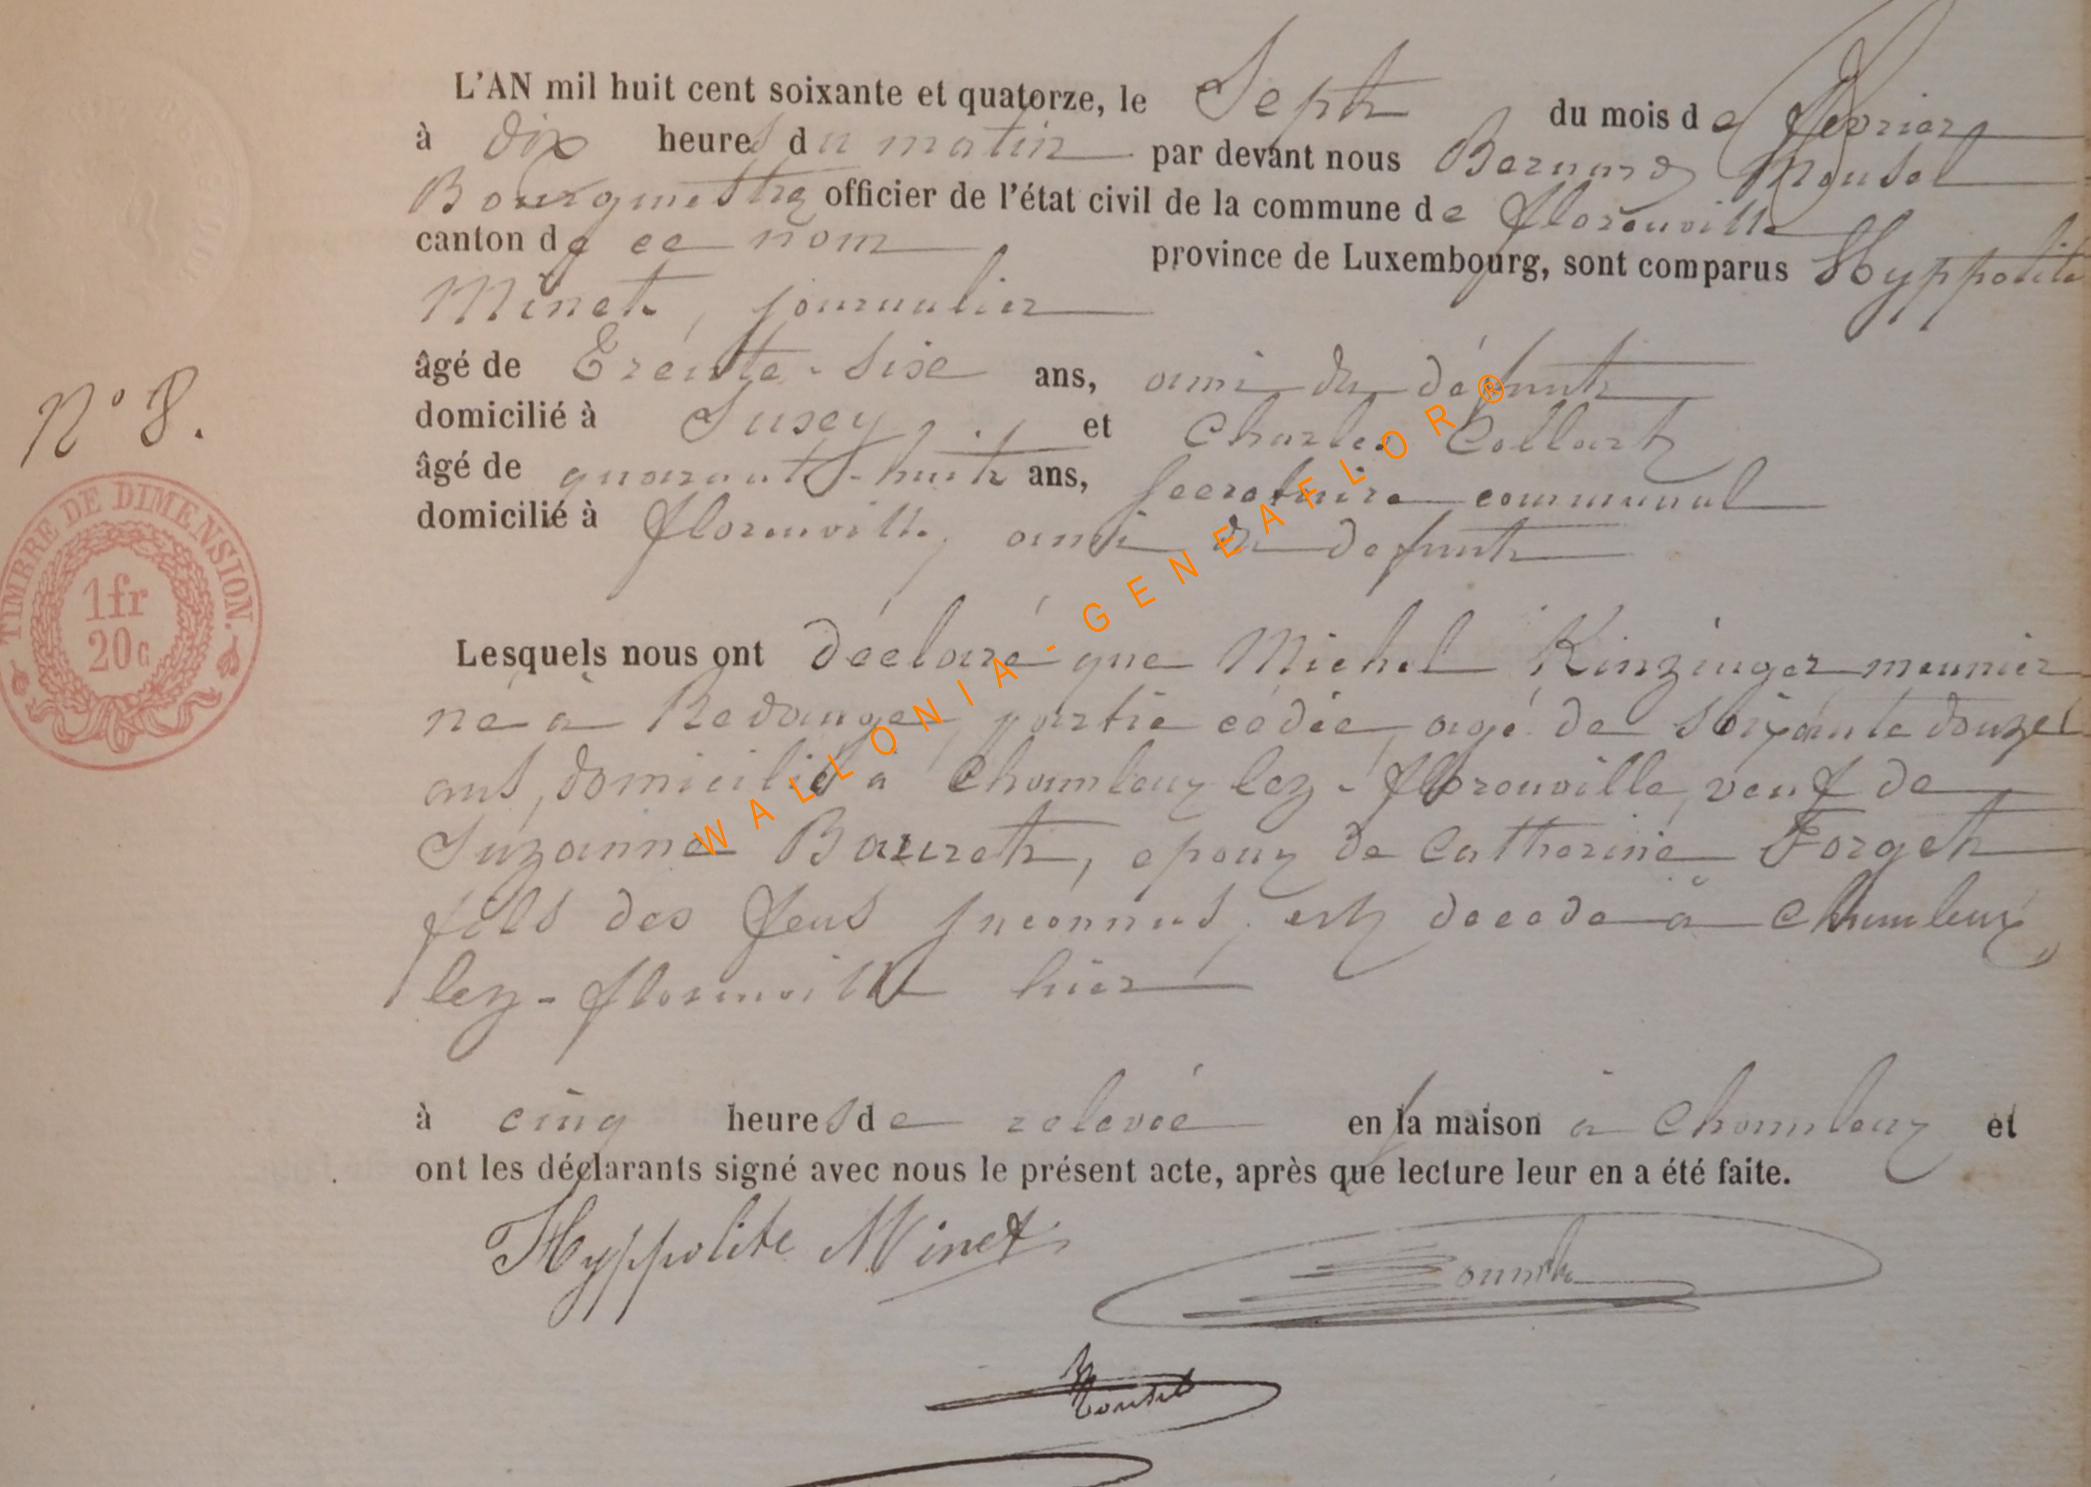 L'AN mil huit cent soixante et quatorze, le Sept du mois de février
à dix heures du matin par devant nous Bernard Mousel
Bourgmestre officier de l'état civil de la commune de florenville
canton de ce nom province de Luxembourg, sont comparus Hyppolite
Minet, journalier
âgé de Trente-six ans, ami du défunt
domicilié à Suxey, et Charles Collart
âgé de quarante-huit ans, secrétaire communal
domicilié à florenville, ami du défunt
N° 8.
TIMBRE DE DIMENSION.
1fr
20c
WALLONIA-GENEAFLOR®
Lesquels nous ont déclaré que Michel Kinzinger meunier
né à Redange, partie cédée, agé de soixante douze
ans, domicilié à Chameleux lez-florenville, veuf de
Suzanne Bauret, epoux de Catherine Forget
fils des feus Inconnus, est decedé à Chameleux
lez-florenville hier
à cinq heures de relevée en sa maison à Chameleux et
ont les déclarants signé avec nous le présent acte, après que lecture leur en a été faite.
Hyppolite Minet
Mousel